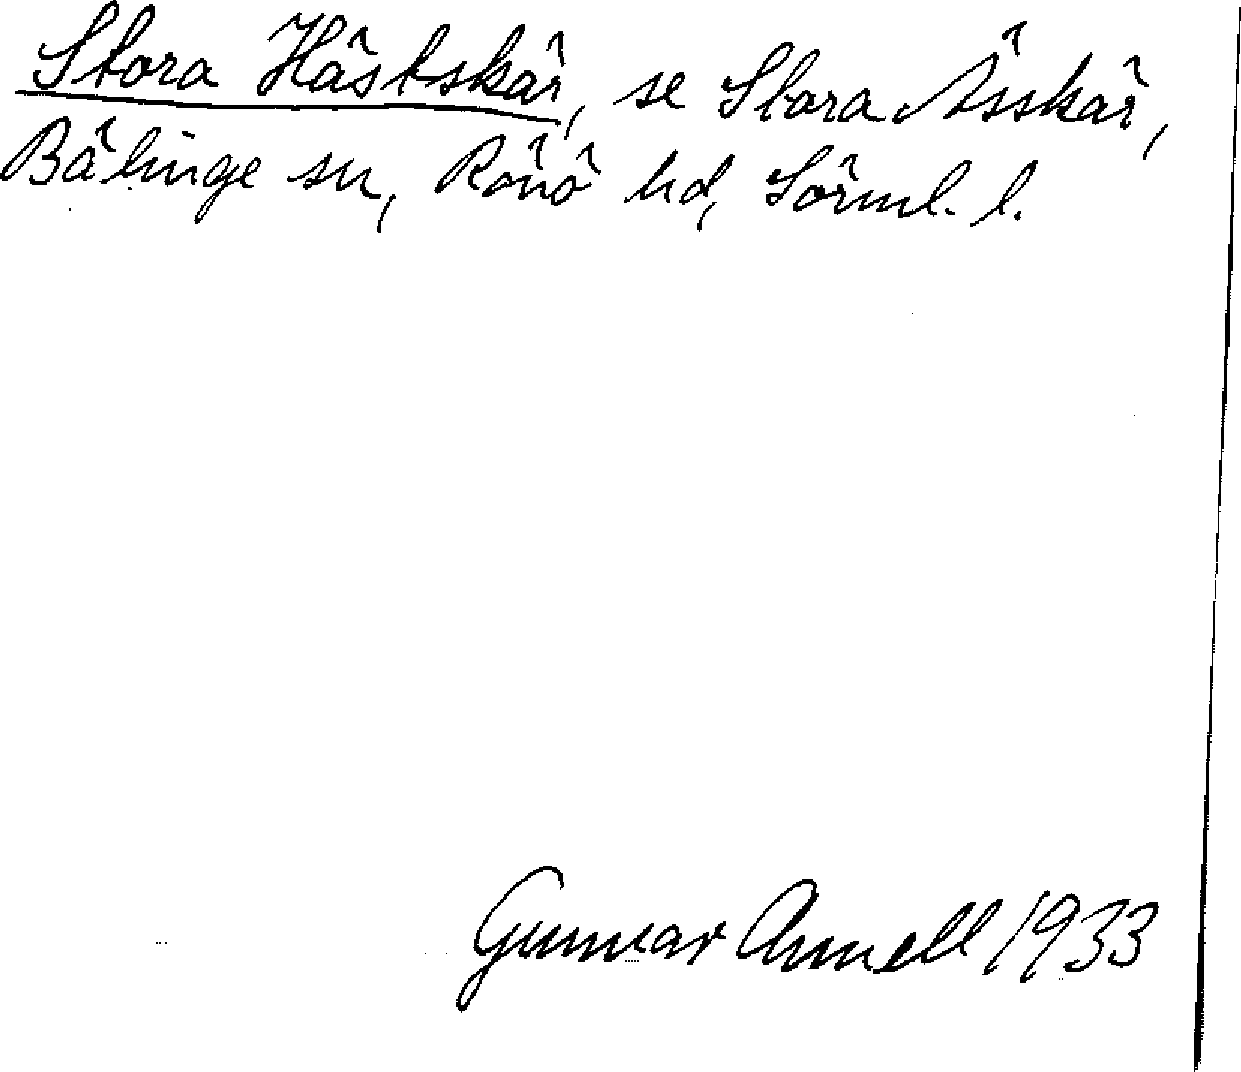 Stora Hästskär, se Stora Ässkär,
Bälinge sn, Rönö hd, Sörml. l.
Gunnar Annell 1933